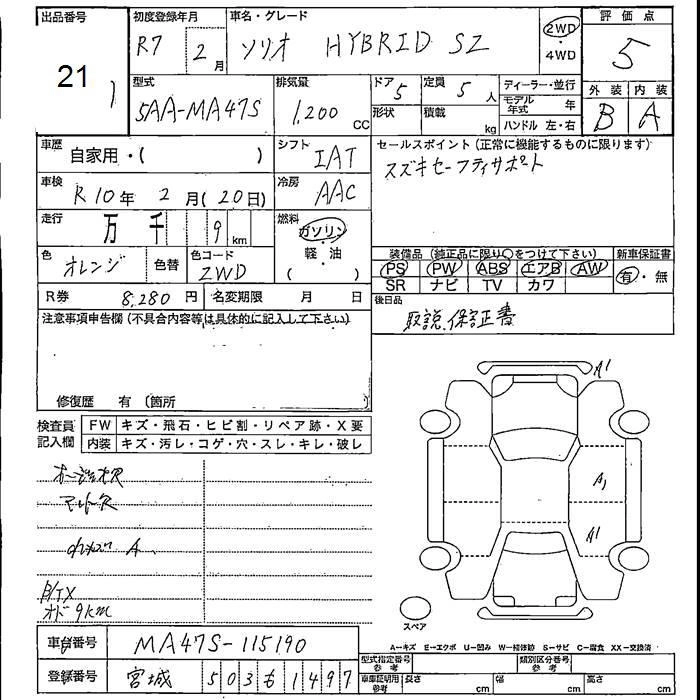 出品番号 初度登録年月 車名・グレード 評価点
21 R7 2月 ソリオ HYBRID SZ 2WD・4WD 5
型式 排気量 ドア 5 定員 5人 ディーラー・並行 外装 内装
5AA-MA47S 1,200 CC 形状 積載 kg モデル年式 年 B A
ハンドル 左・右
車歴 自家用・( ) シフト IAT セールスポイント(正常に機能するものに限ります)
スズキセーフティサポート
車検 R10年 2月(20日) 冷房 AAC
走行 万 千 9 km 燃料 ガソリン・軽・油 ( )
色 オレンジ 色替 色コード ZWD 装備品(純正品に限り○をつけて下さい) 新車保証書
PS PW ABS エアB AW 有・無
SR ナビ TV カワ
R券 8,280円 名変期限 月 日 後日品
取説、保証書
注意事項申告欄(不具合内容等は具体的に記入して下さい)
修復歴 有 〔箇所 〕
検査員記入欄 FW キズ・飛石・ヒビ割・リペア跡・X要
内装 キズ・汚レ・コゲ・穴・スレ・キレ・破レ
A1
A1
A1
A
オド9km
スペア
車台番号 MA47S-115190
A-キズ E-エクボ U-凹み W-補修跡 S-サビ C-腐食 XX-交換済
登録番号 宮城 503 も 1497
型式指定番号 参考 類別区分番号 参考
車庫証明用 参考 長さ cm 幅 cm 高さ cm